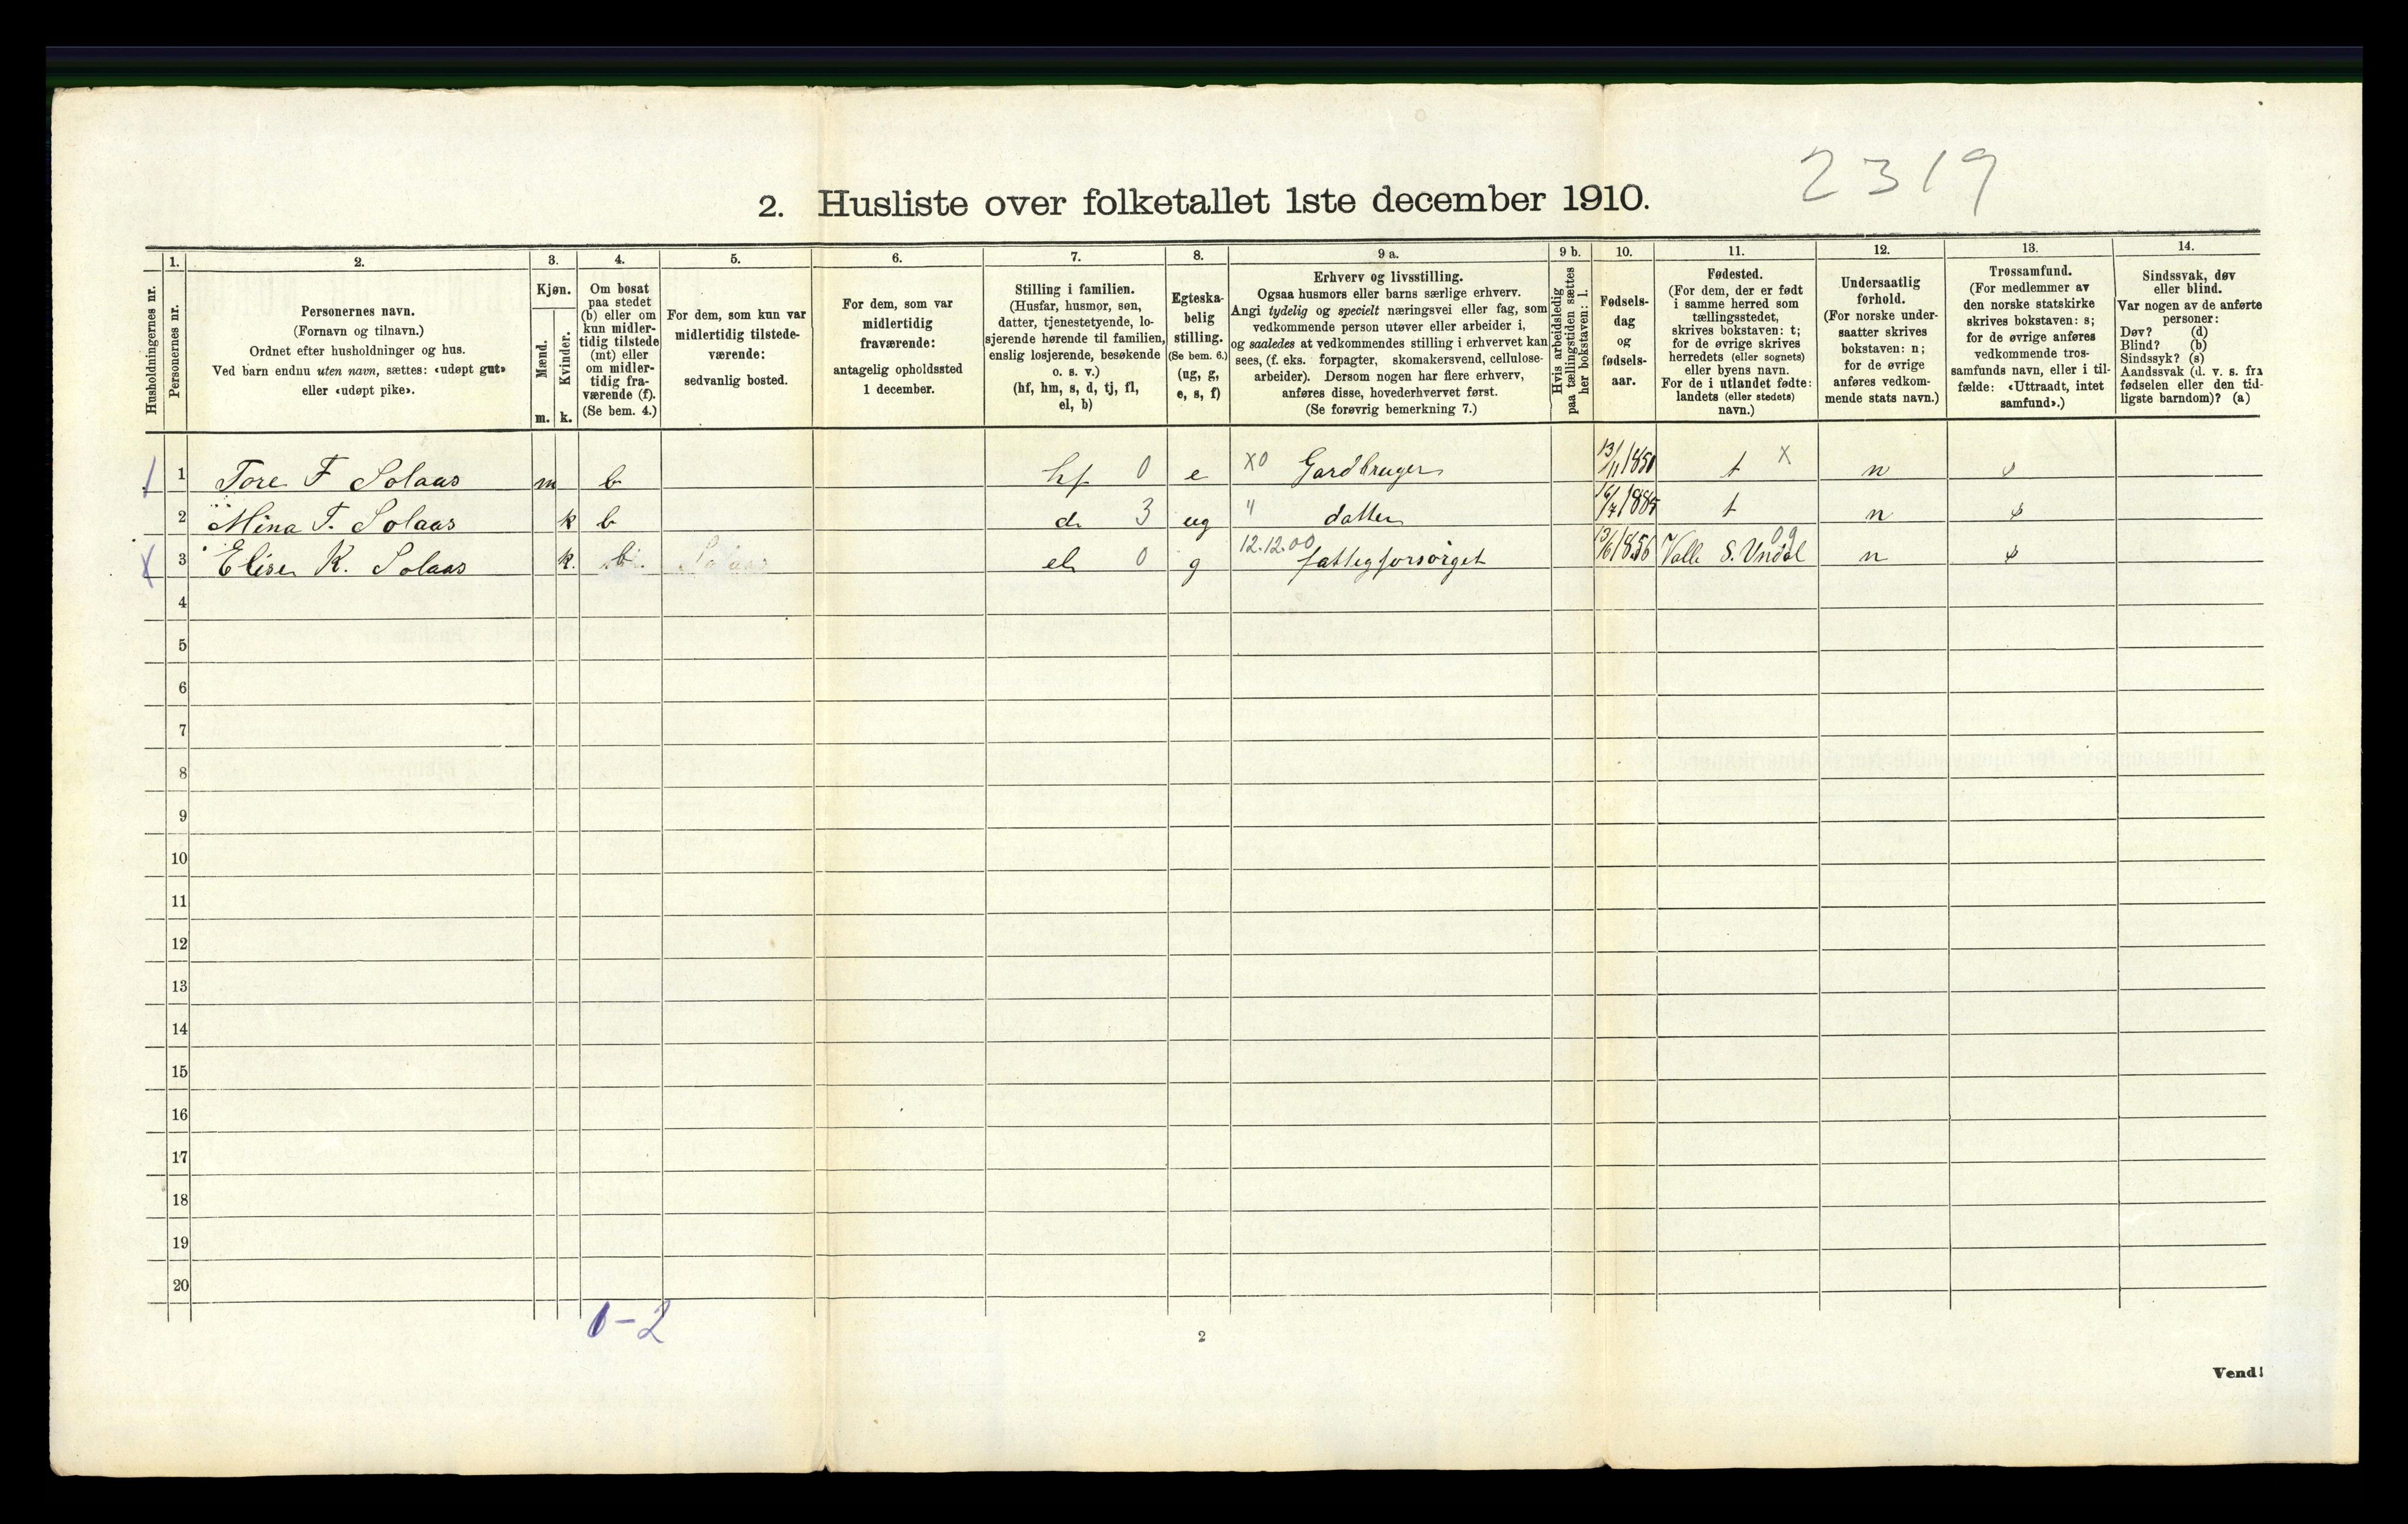 2319
2. Husliste over folketallet 1ste december 1910.
Husholdningernes nr.
1.
Personernes nr.
2.
Personernes navn.
(Fornavn og tilnavn.)
Ordnet efter husholdninger og hus.
Ved barn endnu uten navn, sættes: «udøpt gut»
eller «udøpt pike».
3.
Kjøn.
Mænd.
Kvinder.
m.
k.
4.
Om bosat
paa stedet
(b) eller om
kun midler-
tidig tilstede
(mt) eller
om midler-
tidig fra-
værende (f).
(Se bem. 4.)
5.
For dem, som kun var
midlertidig tilstede-
værende:
sedvanlig bosted.
6.
For dem, som var
midlertidig
fraværende:
antagelig opholdssted
1 december.
7.
Stilling i familien.
(Husfar, husmor, søn,
datter, tjenestetyende, lo-
sjerende hørende til familien,
enslig losjerende, besøkende
o. s. v.)
(hf, hm, s, d, tj, fl,
el, b)
8.
Egteska-
belig
stilling.
(Se bem. 6.)
(ug, g,
e, s, f)
9 a.
Erhverv og livsstilling.
Ogsaa husmors eller barns særlige erhverv.
Angi tydelig og specielt næringsvei eller fag, som
vedkommende person utøver eller arbeider i,
og saaledes at vedkommendes stilling i erhvervet kan
sees, (f. eks. forpagter, skomakersvend, cellulose-
arbeider). Dersom nogen har flere erhverv,
anføres disse, hovederhvervet først.
(Se forøvrig bemerkning 7.)
9 b.
Hvis arbeidsledig
paa tællingstiden sættes
her bokstaven: l.
10.
Fødsels-
dag
og
fødsels-
aar.
11.
Fødested.
(For dem, der er født
i samme herred som
tællingsstedet,
skrives bokstaven: t;
for de øvrige skrives
herredets (eller sognets)
eller byens navn.
For de i utlandet fødte:
landets (eller stedets)
navn.)
12.
Undersaatlig
forhold.
(For norske under-
saatter skrives
bokstaven: n;
for de øvrige
anføres vedkom-
mende stats navn.)
13.
Trossamfund.
(For medlemmer av
den norske statskirke
skrives bokstaven: s;
for de øvrige anføres
vedkommende tros-
samfunds navn, eller i til-
fælde: «Uttraadt, intet
samfund».)
14.
Sindssvak, døv
eller blind.
Var nogen av de anførte
personer:
Døv? (d)
Blind? (b)
Sindssyk? (s)
Aandssvak (d. v. s. fra
fødselen eller den tid-
ligste barndom)? (a)
1 Tore F Solaas m b hf 0 e X0 Gardbruger 13/11 1850 t X n s
2 Mina T. Solaas k b d 3 ug " datter 16/7 1885 t n s
3 Elise K. Solaas k. b. Solaas el 0 g 12.12.00 fattigforsörget 13/6 1856 Valle S. Undal 09 n s
4
5
6
7
8
9
10
11
12
13
14
15
16
17
18
19
20
1-2
2
Vend!